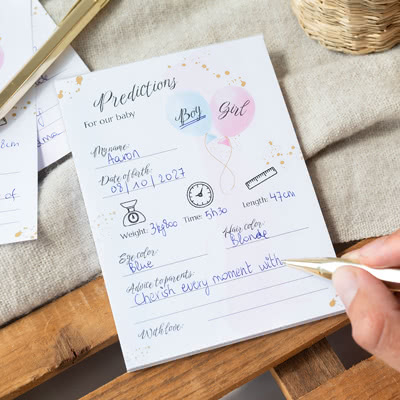 Predictions
For our baby
Boy Girl
My name:
Aaron
Date of birth:
08/10/2027
Weight: 3kg800 Time: 5h30 Length: 47cm
Eye color: Hair color:
Blue Blonde
Advice to parents:
Cherish every moment with
With love:
8cm
of